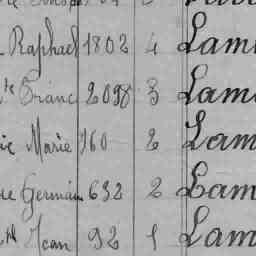 Raphael 1802 4 Lam
Franc 2098 3 Lam
ie Marie 960 2 Lam
re Germain 632 2 Lam
Jean 92 1 Lam